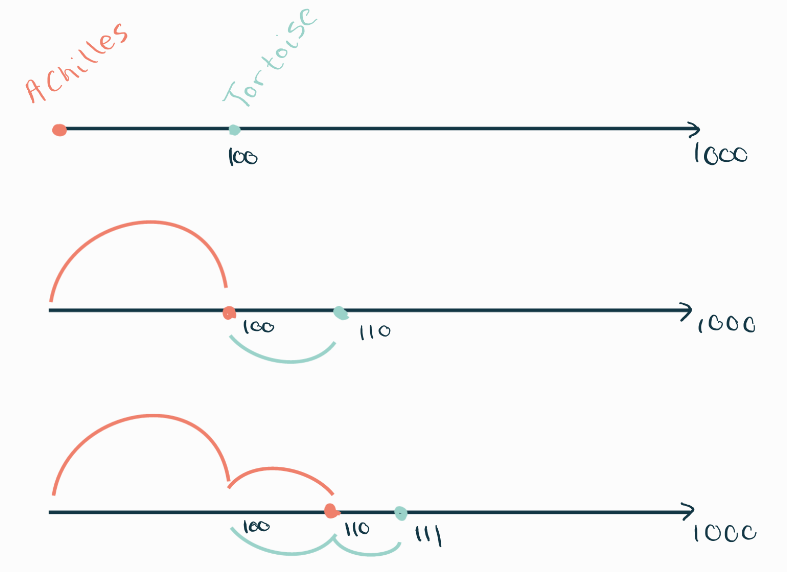 Achilles
Tortoise
100
1000
100
110
1000
100
110
111
1000